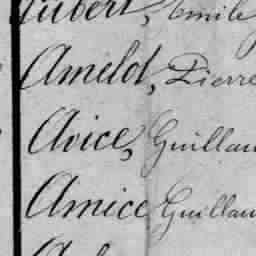 Aubert, Emile
Amelot, Pierre
Avice, Guillau
Amice Guillau